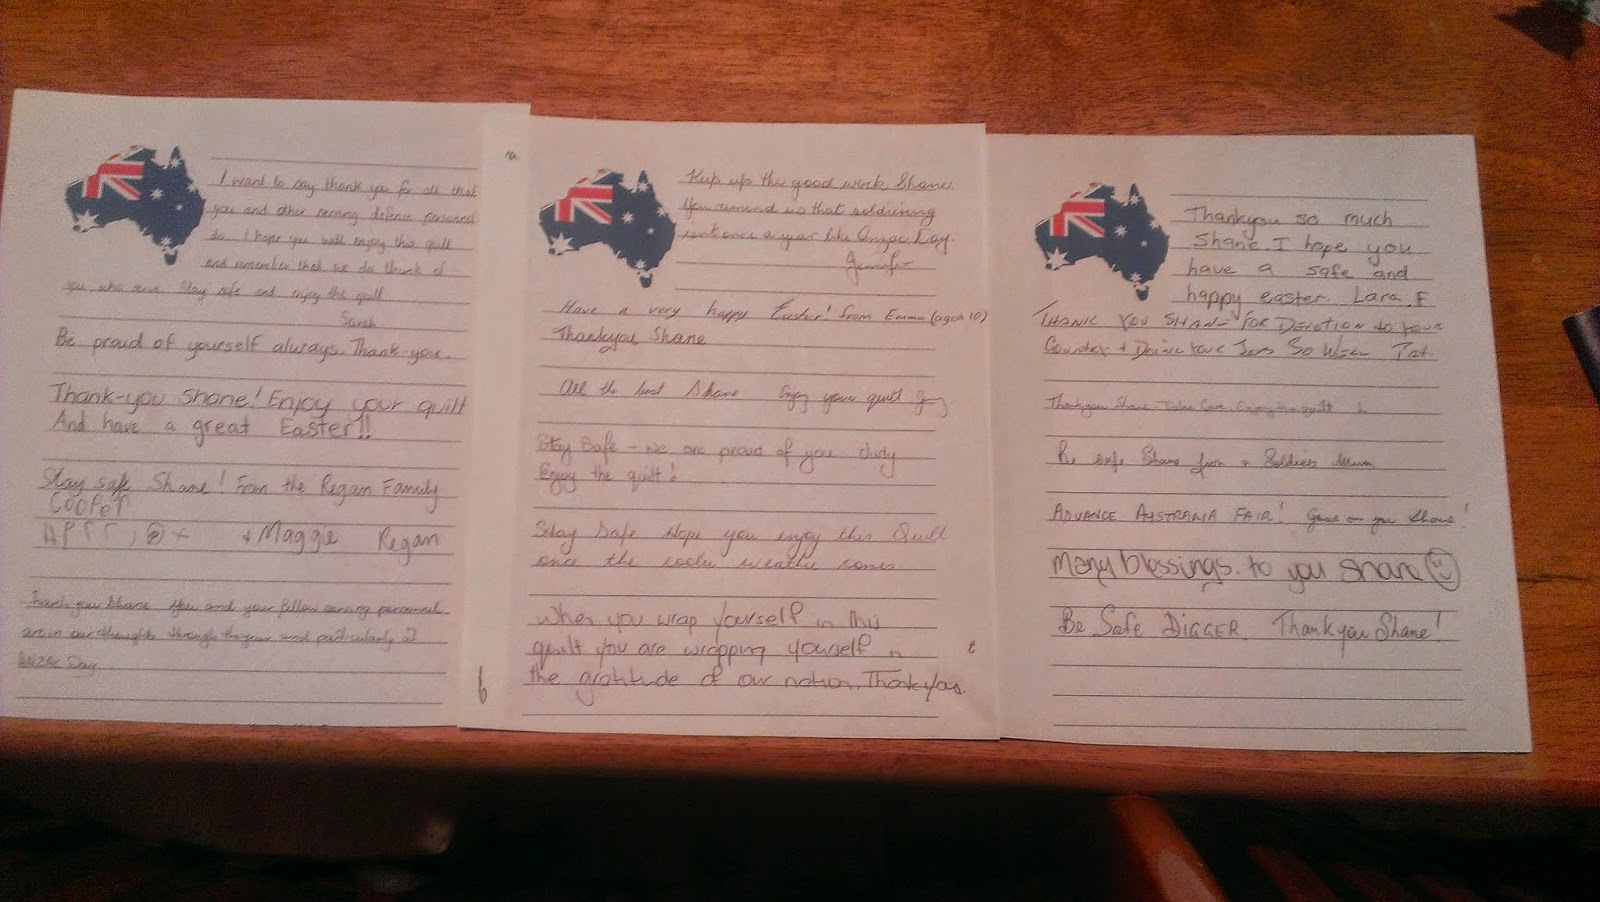 I want to say thank you for all that
you and other serving defence personnel
do. I hope you will enjoy this quilt
and remember that we do think of
you who serve. Stay safe and enjoy the quilt
Sarah
Be proud of yourself always. Thank-you.
Thank-you Shane! Enjoy your quilt
And have a great Easter!!
Stay safe Shane! From the Regan Family
Cooper
+ Maggie Regan
Thank you Shane You and your fellow serving personnel
are in our thoughts through the year and particularly at
ANZAC Day
Keep up the good work, Shane.
You remind us that soldiering
isnt once a year like Anzac Day.
Jennifer
Have a very happy Easter! from Emma (aged 10)
Thankyou Shane
All the best Shane Enjoy your quilt
Stay Safe - We are proud of you Judy
Enjoy the quilt!
Stay Safe Hope you enjoy this Quilt
once the cooler weather comes
When you wrap yourself in this
quilt you are wrapping yourself in
the gratitude of our nation. Thankyou.
Thankyou so much
Shane. I hope you
have a safe and
happy easter. Lara F
THANK YOU SHANE FOR DEVOTION TO YOUR
COUNTRY + DOING YOUR JOB SO WELL Pat.
Thankyou Shane. Take Care. Enjoy the quilt
Be safe Shane from a Soldiers Mum
ADVANCE AUSTRALIA FAIR! Good on you Shane!
Many blessings. to you Shane
Be Safe DIGGER. Thankyou Shane!